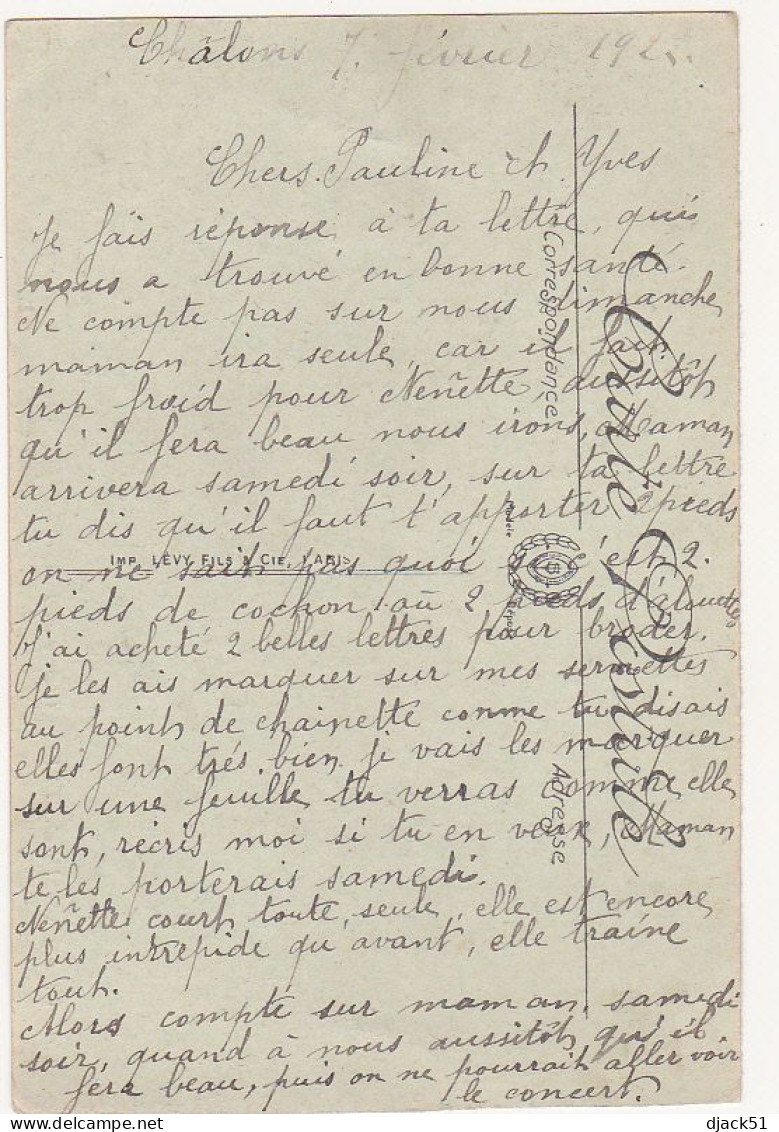 Châlons 7. février 192
Chers. Pauline et Yves
Je fais réponse à ta lettre, qui
nous a trouvé en bonne santé.
Ne compte pas sur nous dimanche
maman ira seule, car il fait
trop froid pour Nenette, aussitôt
qu'il fera beau nous irons, Maman
arrivera samedi soir, sur ta lettre
tu dis qu'il faut t'apporter 2 pieds
on ne sait pas quoi si c'est 2.
pieds de cochon au 2 pieds d'alouettes
J'ai acheté 2 belles lettres pour broder.
je les ais marquer sur mes serviettes
au point de chainette comme tu disais
elles font trés bien je vais les marquer
sur une feuille tu verras comme elle
sont, récris moi si tu en veux, Maman
te les porterais samedi.
Nenette court toute seule, elle est encore
plus intrepide qu'avant, elle traine
tout.
Alors compte sur maman, samedi
soir, quand à nous aussitôt qu'il
fera beau, puis on ne pourrait aller voir
le concert.
Carte Postale
Correspondance
Adresse
Modèle Déposé
IMP. LÉVY FILS & CIE, PARIS
djack51